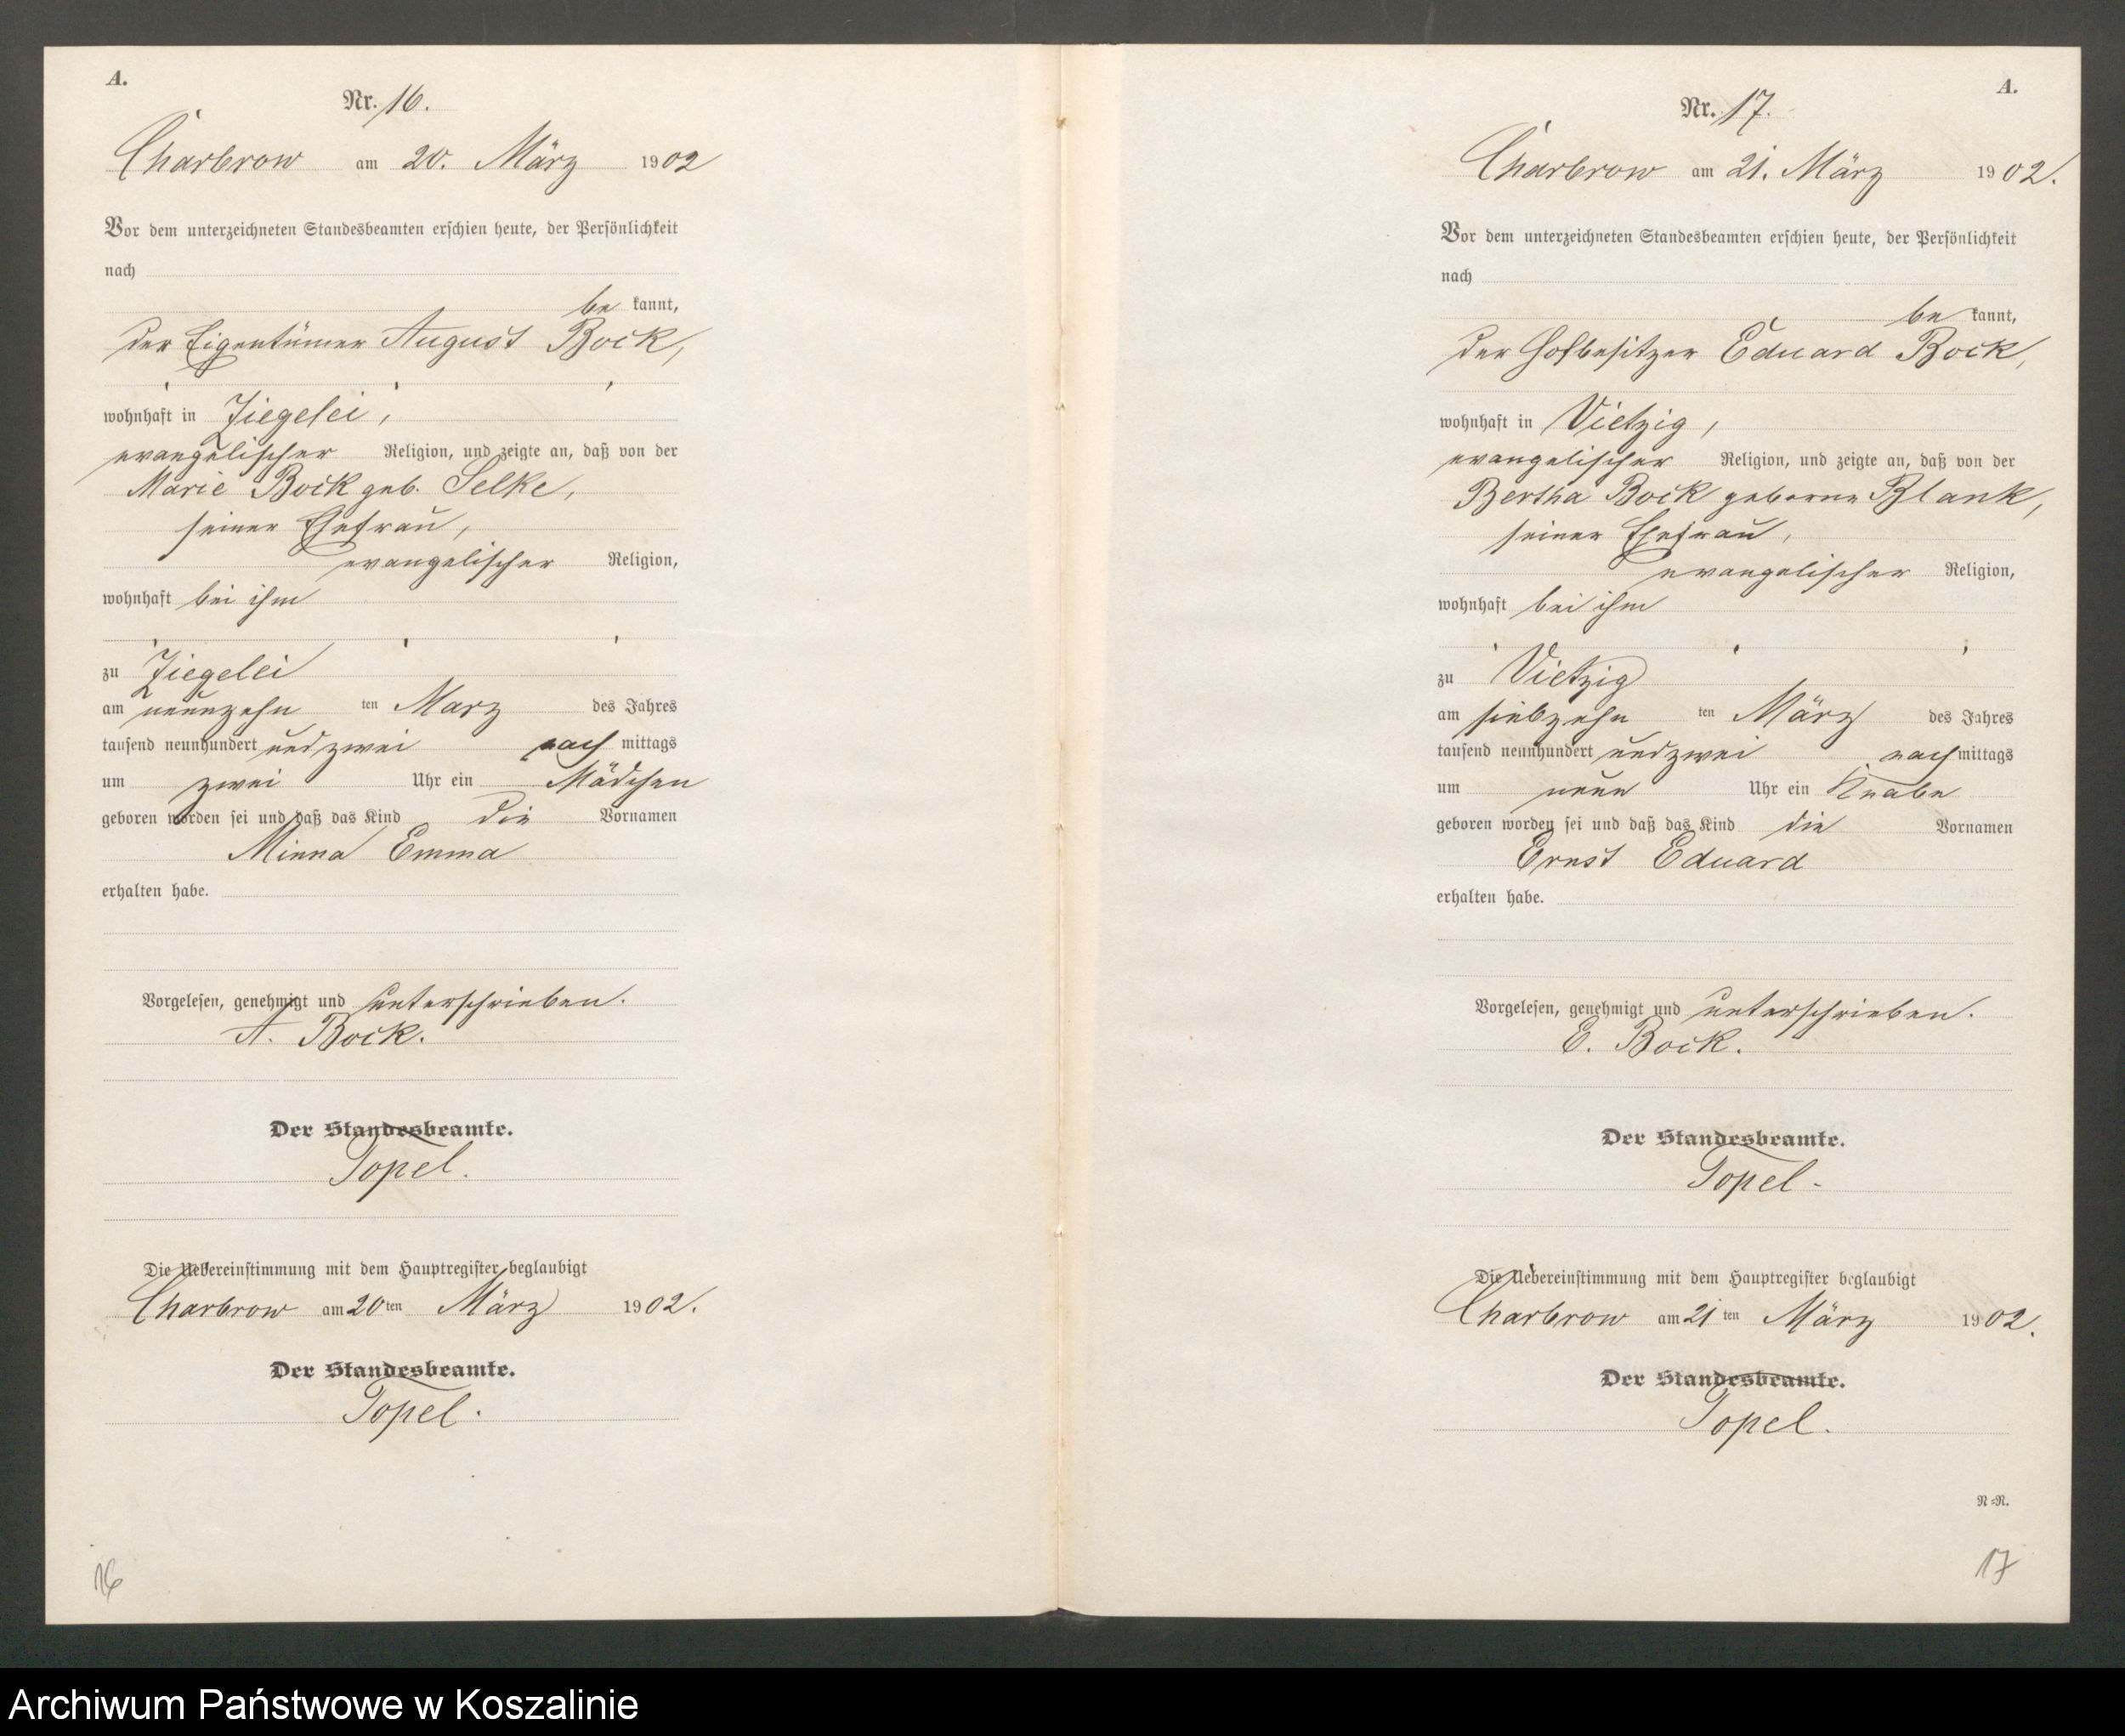 A.
Nr. 16.
Charbrow am 20. März 1902
Vor dem unterzeichneten Standesbeamten erschien heute, der Persönlichkeit
nach
be kannt,
der Eigentümer August Bock,
wohnhaft in Ziegelei,
evangelischer Religion, und zeigte an, daß von der
Marie Bock geb. Selke,
seiner Ehefrau,
evangelischer Religion,
wohnhaft bei ihm
zu Ziegelei
am neunzehn ten Marz des Jahres
tausend neunhundert und zwei nach mittags
um zwei Uhr ein Mädchen
geboren worden sei und daß das Kind die Vornamen
Minna Emma
erhalten habe.
Vorgelesen, genehmigt und unterschrieben.
A. Bock.
Der Standesbeamte.
Topel.
Die Uebereinstimmung mit dem Hauptregister beglaubigt
Charbrow am 20ten März 1902.
Der Standesbeamte.
Topel.
16
A.
Nr. 17.
Charbrow am 21. März 1902.
Vor dem unterzeichneten Standesbeamten erschien heute, der Persönlichkeit
nach
be kannt,
der Hofbesitzer Eduard Bock,
wohnhaft in Vietzig,
evangelischer Religion, und zeigte an, daß von der
Bertha Bock geborne Blank,
seiner Ehefrau,
evangelischer Religion,
wohnhaft bei ihm
zu Vietzig
am siebzehn ten März des Jahres
tausend neunhundert und zwei nach mittags
um neun Uhr ein Knabe
geboren worden sei und daß das Kind die Vornamen
Ernst Eduard
erhalten habe.
Vorgelesen, genehmigt und unterschrieben.
E. Bock.
Der Standesbeamte.
Topel.
Die Uebereinstimmung mit dem Hauptregister beglaubigt
Charbrow am 21 ten März 1902.
Der Standesbeamte.
Topel.
N=R.
17
Archiwum Państwowe w Koszalinie